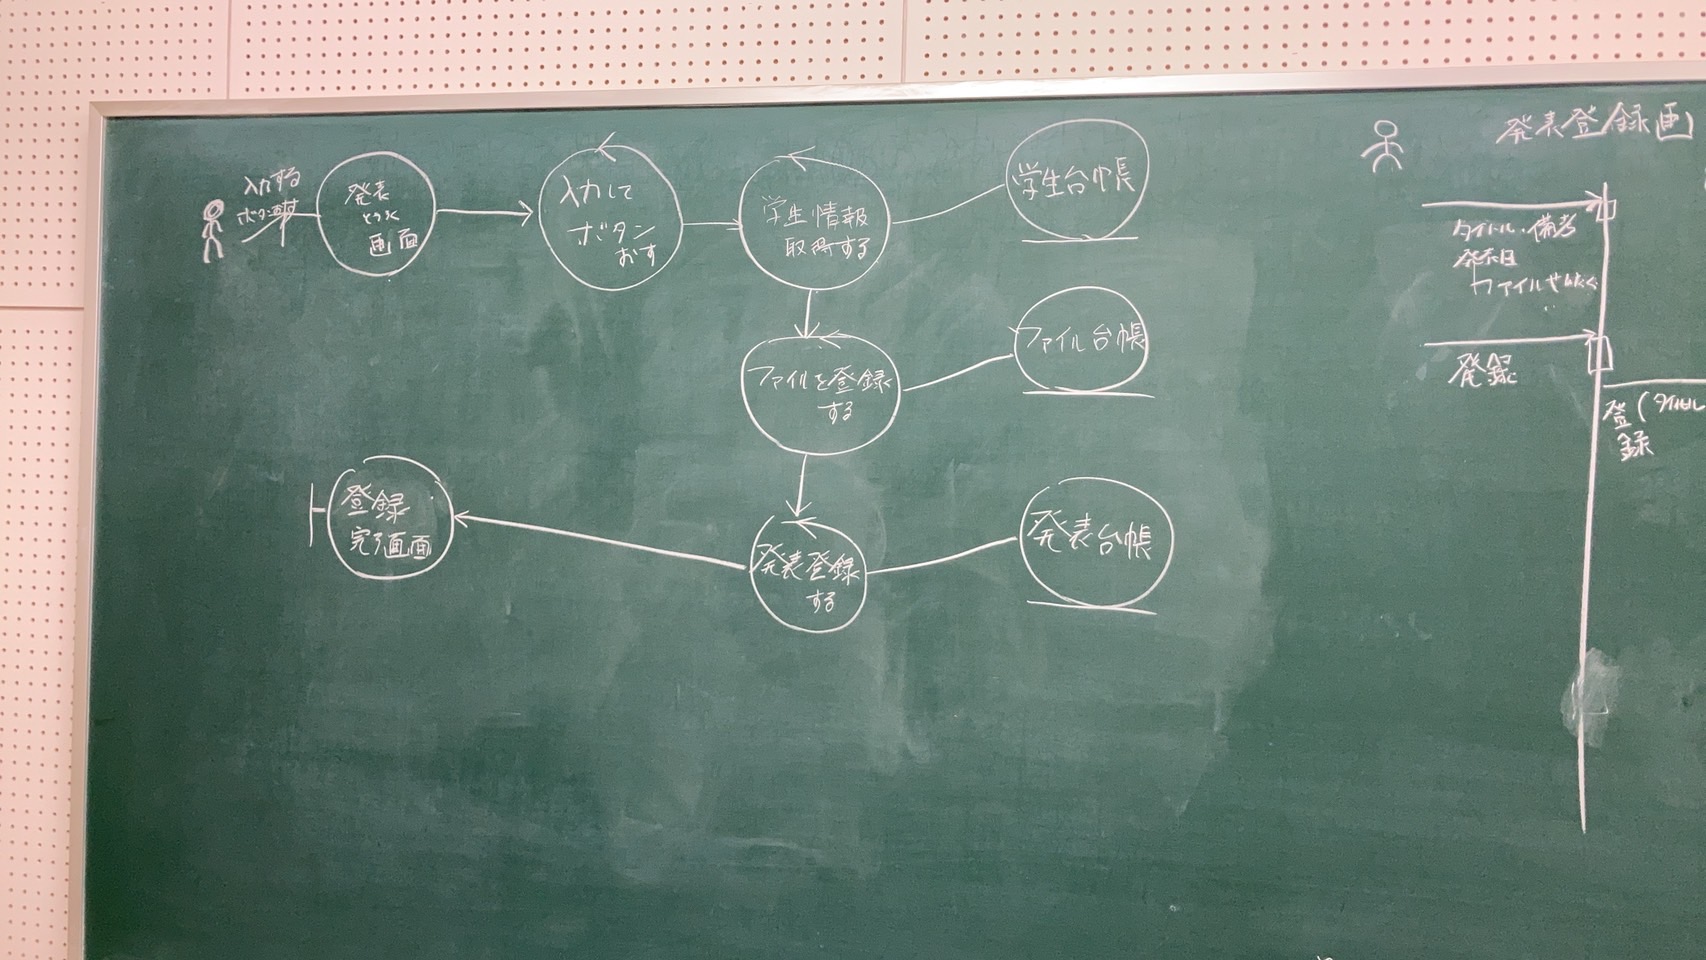 入力する
ボタン押す
発表
とうろく
画面
入力して
ボタン
おす
学生情報
取得する
学生台帳
ファイルを登録
する
ファイル台帳
発表登録
する
発表台帳
登録
完了画面
発表登録画
タイトル・備考
発表日
ファイルせんたく
登録
登(タイトル
録